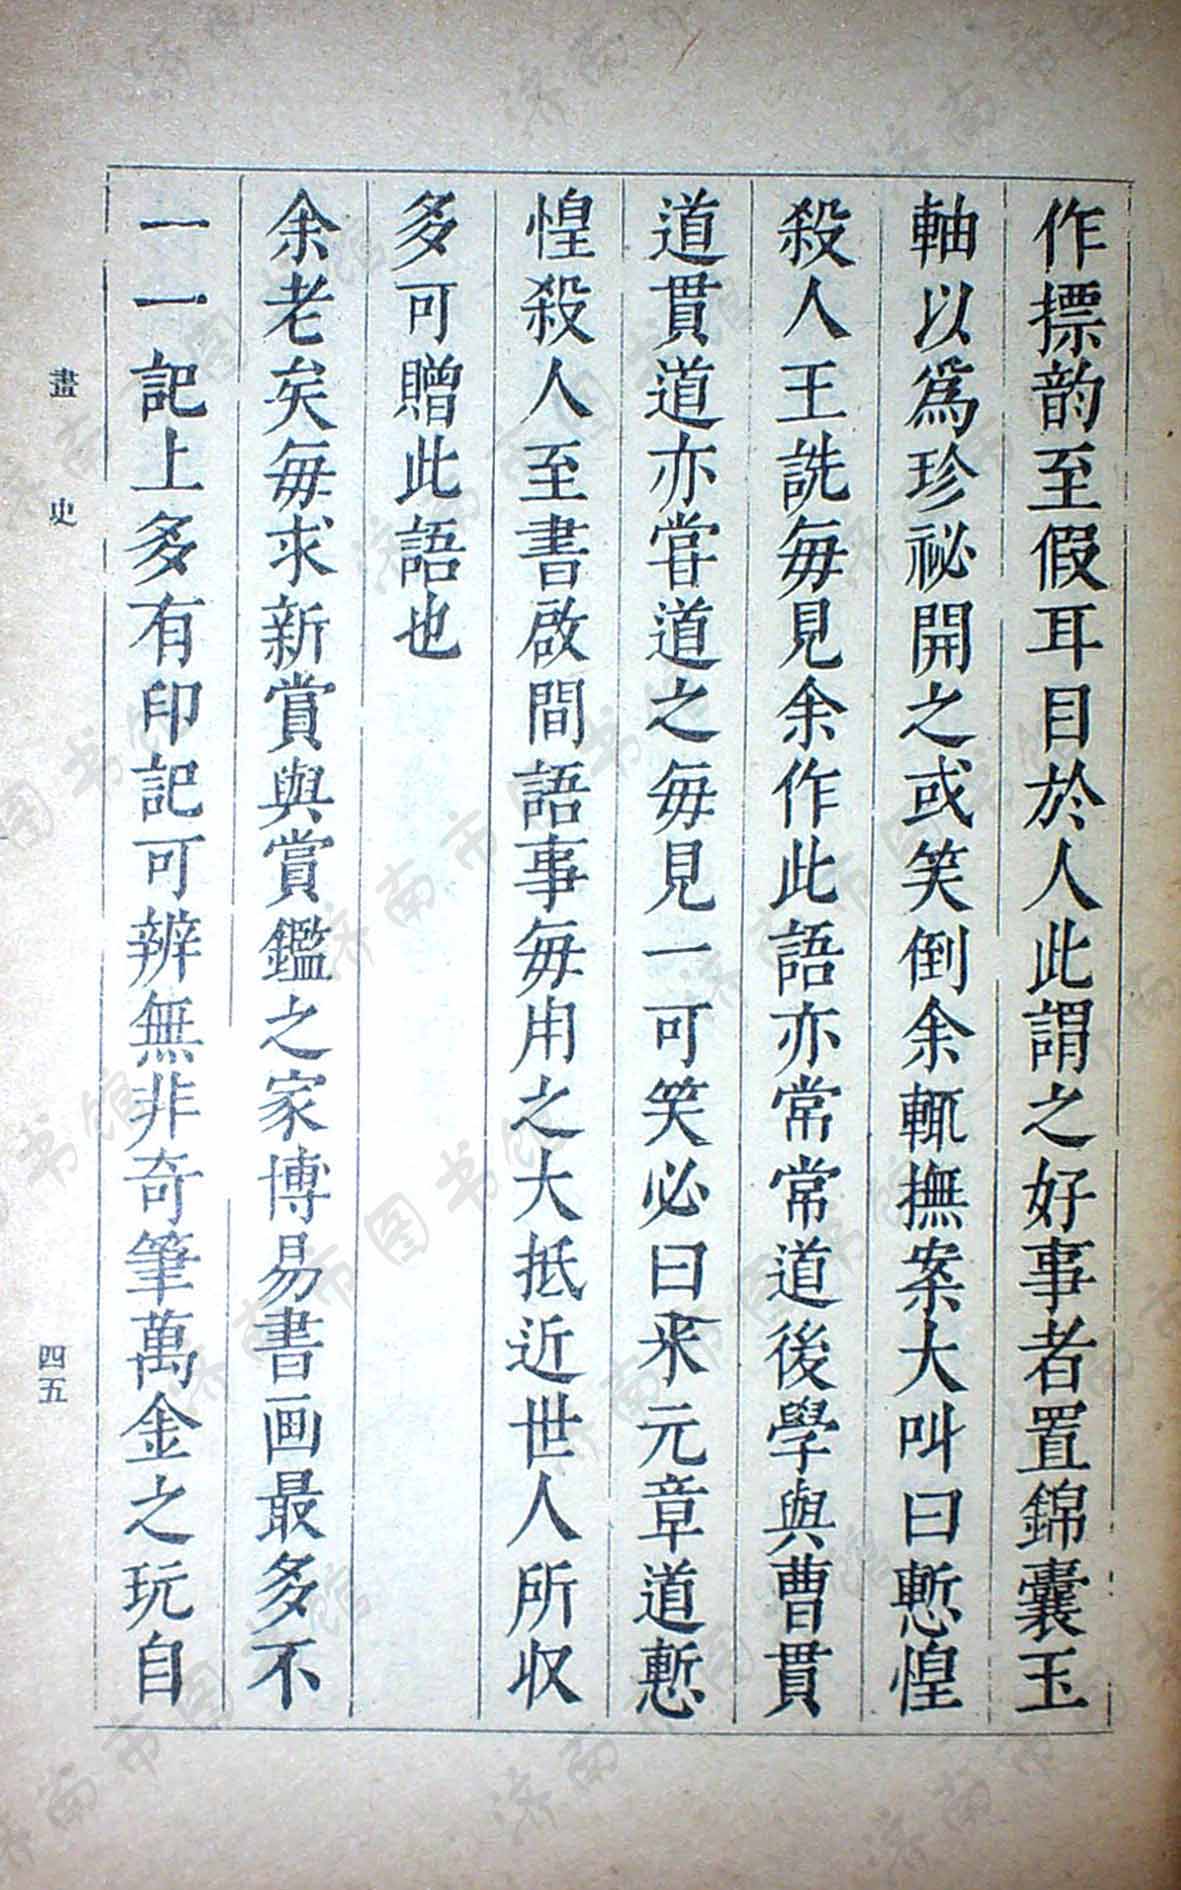 作摽韵至假耳目於人此謂之好事者置錦囊玉
軸以為珍祕開之或笑倒余輒撫案大叫曰慙惶
殺人王詵每見余作此語亦常常道後學與曹貫
道貫道亦嘗道之每見一可笑必曰米元章道慙
惶殺人至書啟間語事每用之大抵近世人所収
多可贈此語也
余老矣每求新賞與賞鑑之家博易書画最多不
一一記上多有印記可辨無非奇筆萬金之玩自
畫史
四五
济南市图书馆